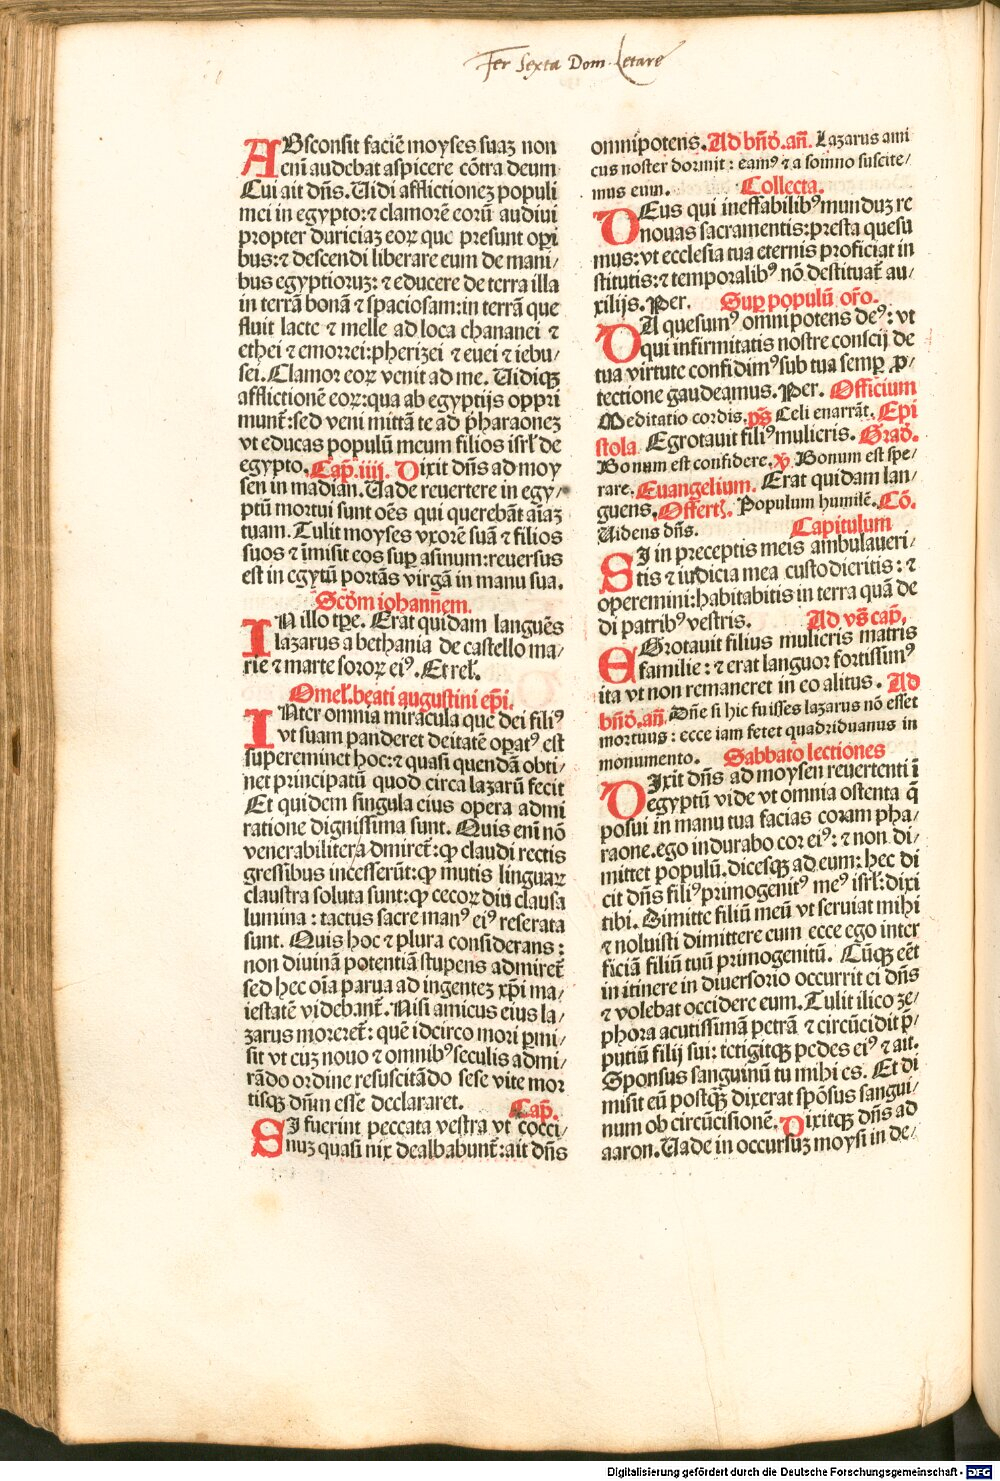 Fer Sexta Dom. Letare
ABsconsit faciē moyses suaꝫ non
eni audebat aspicere cōtra deum
Cui ait dn̄s. Uidi afflictionez populi
mei in egypto: ⁊ clamorē eorū audiui
propter duriciaꝫ eoꝝ que presunt opi
bus: ⁊ descendi liberare eum de mani/
bus egyptioruꝫ: ⁊ educere de terra illa
in terrā bonā ⁊ spaciosam: in terrā que
fluit lacte ⁊ melle ad loca chananei ⁊
ethei ⁊ emorrei: pherizei ⁊ euei ⁊ iebu/
sei. Clamor eoꝝ venit ad me. Uidiqꝫ
afflictionē eoꝝ: qua ab egyptijs oppri
munt᷑: sed veni mittā te ad pharaonez
vt educas populū meum filios isrl̄ de
egypto. Cap̄. iiij. Dixit dn̄s ad moy
sen in madian. Uade reuertere in egy/
ptū mortui sunt oēs qui querebāt aīaꝫ
tuam. Tulit moyses vxorē suā ⁊ filios
suos ⁊ īmisit eos suꝑ asinum: reuersus
est in egytū portās virgā in manu sua.
Scd̄m iohannem.
IN illo tp̄e. Erat quidam languēs
lazarus a bethania de castello ma/
rie ⁊ marte soroꝝ eiꝰ. Et rel̄.
Omel̄. beati augustini ep̄i.
INter omnia miracula que dei filiꝰ
vt suam panderet deitatē opatꝰ est
supereminet hoc: ⁊ quasi quendā obti/
net principatū quod circa lazarū fecit
Et quidem singula eius opera admi
ratione dignissima sunt. Quis eni nō
venerabilitera dmiret᷑: qꝫ claudi rectis
gressibus incesserūt: qꝫ mutis linguaꝝ
claustra soluta sunt: qꝫ cecoꝝ diu clausa
lumina: tactus sacre manꝰ eiꝰ reserata
sunt. Quis hoc ⁊ plura considerans:
non diuinā potentiā stupens admiret᷑
sed hec oīa parua ad ingentez xp̄i ma/
iestatē videbant᷑. Nisi amicus eius la/
zarus moreret᷑: quē idcirco mori ꝑmi/
sit vt cuꝫ nouo ⁊ omnibꝰ seculis admi/
rādo ordine resuscitādo sese vite mor
tisqꝫ dn̄m esse declararet. Cap̄.
SI fuerint peccata vestra vt cocci/
nuꝫ quasi nix dealbabunt᷑: ait dn̄s
omnipotens. Ad bn̄d̄. an̄. Lazarus ami
cus noster dormit: eamꝰ ⁊ a somno suscite/
mus eum. Collecta.
DEus qui ineffabilibꝰ munduꝫ re
nouas sacramentis: presta quesu
mus: vt ecclesia tua eternis proficiat in
stitutis: ⁊ temporalibꝰ nō destituat᷑ au/
xilijs. Per. Suꝑ populū or̄o.
DA quesumꝰ omnipotens deꝰ: vt
qui infirmitatis nostre conscij de
tua virtute confidimꝰ sub tua semꝑ ꝓ/
tectione gaudeamus. Per. Officium
Meditatio cordis. ps̄ Celi enarrāt. Epi
stola. Egrotauit filiꝰ mulieris. Grad̄.
Bonum est confidere. v̄ Bonum est spe/
rare. Euangelium. Erat quidam lan/
guens. Offert᷑. Populum humilē. Cō.
Uidens dn̄s. Capitulum
SI in preceptis meis ambulaueri/
tis ⁊ iudicia mea custodieritis: ⁊
operemini: habitabitis in terra quā de
di patribꝰ vestris. Ad vs̄ cap̄.
EGrotauit filius mulieris matris
familie: ⁊ erat languor fortissimꝰ
ita vt non remaneret in eo alitus. Ad
bn̄d̄. an̄. Dn̄e si hic fuisses lazarus nō esset
mortuus: ecce iam fetet quadriduanus in
monumento. Sabbato lectiones
DIxit dn̄s ad moysen reuertenti ī
egyptū vide vt omnia ostenta q̄
posui in manu tua facias coram pha/
raone. ego indurabo cor eiꝰ: ⁊ non di/
mittet populū. dicesqꝫ ad eum: hec di
cit dn̄s filiꝰ primogenitꝰ meꝰ isrl̄: dixi
tibi. Dimitte filiū meū vt seruiat mihi
⁊ noluisti dimittere eum ecce ego inter
ficiā filiū tuū primogenitū. Cūqꝫ eēt
in itinere in diuersorio occurrit ei dn̄s
⁊ volebat occidere eum. Tulit ilico ze/
phora acutissimā petrā ⁊ circūcidit p̄/
putiū filij sui: tetigitqꝫ pedes eiꝰ ⁊ ait.
Sponsus sanguinū tu mihi es. Et di
misit eū postqꝫ dixerat spōsus sangui/
num ob circūcisionē. Dixitqꝫ dn̄s ad
aaron. Uade in occursuꝫ moysi in de/
Digitalisierung gefördert durch die Deutsche Forschungsgemeinschaft - DFG